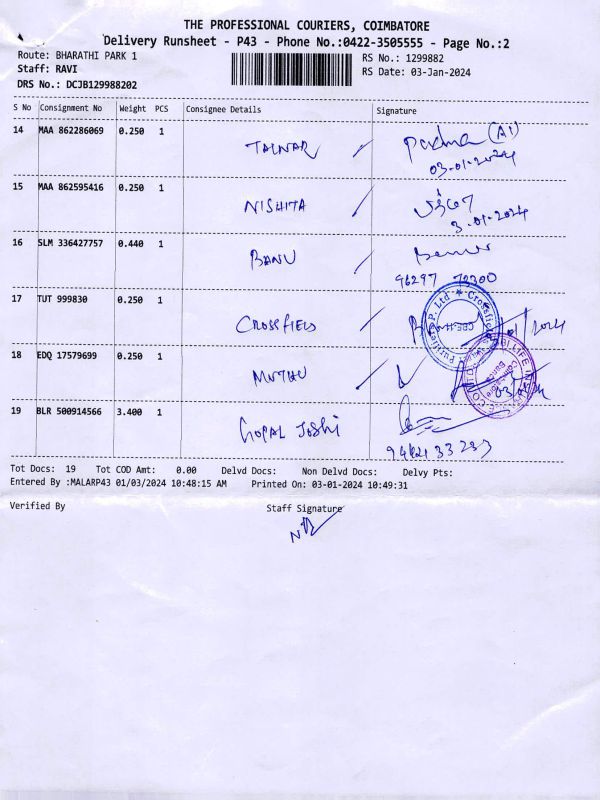 THE PROFESSIONAL COURIERS, COIMBATORE
Delivery Runsheet - P43 - Phone No.:0422-3505555 - Page No.:2
Route: BHARATHI PARK 1
RS No.: 1299882
Staff: RAVI
RS Date: 03-Jan-2024
DRS No.: DCJB129988202
S No Consignment No Weight PCS Consignee Details Signature
14 MAA 862286069 0.250 1 TALWAR Padma (A1)
03-01-2024
15 MAA 862595416 0.250 1 NISHITA
3-01-2024
16 SLM 336427757 0.440 1 BANU
96297 72300
17 TUT 999830 0.250 1 CROSSFIELD
18 EDQ 17579699 0.250 1 MUTHU
19 BLR 500914566 3.400 1 GOPAL JOSHI
Tot Docs: 19 Tot COD Amt: 0.00 Delvd Docs: Non Delvd Docs: Delvy Pts:
Entered By :MALARP43 01/03/2024 10:48:15 AM Printed On: 03-01-2024 10:49:31
Verified By Staff Signature